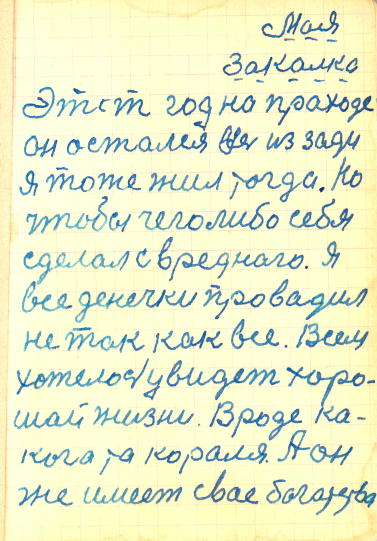 Моя
Закалка
Этст год на праходе
он осталса из зади
я тоже жил тогда. Но
чтобы чеголибо себя
сделал с вреднаго. Я
все денечки правадил
не так как все. Всем
хотелось увидет хоро-
шай жизни. Вроде ка-
кога та кораля. А он
же имеет свае багатства